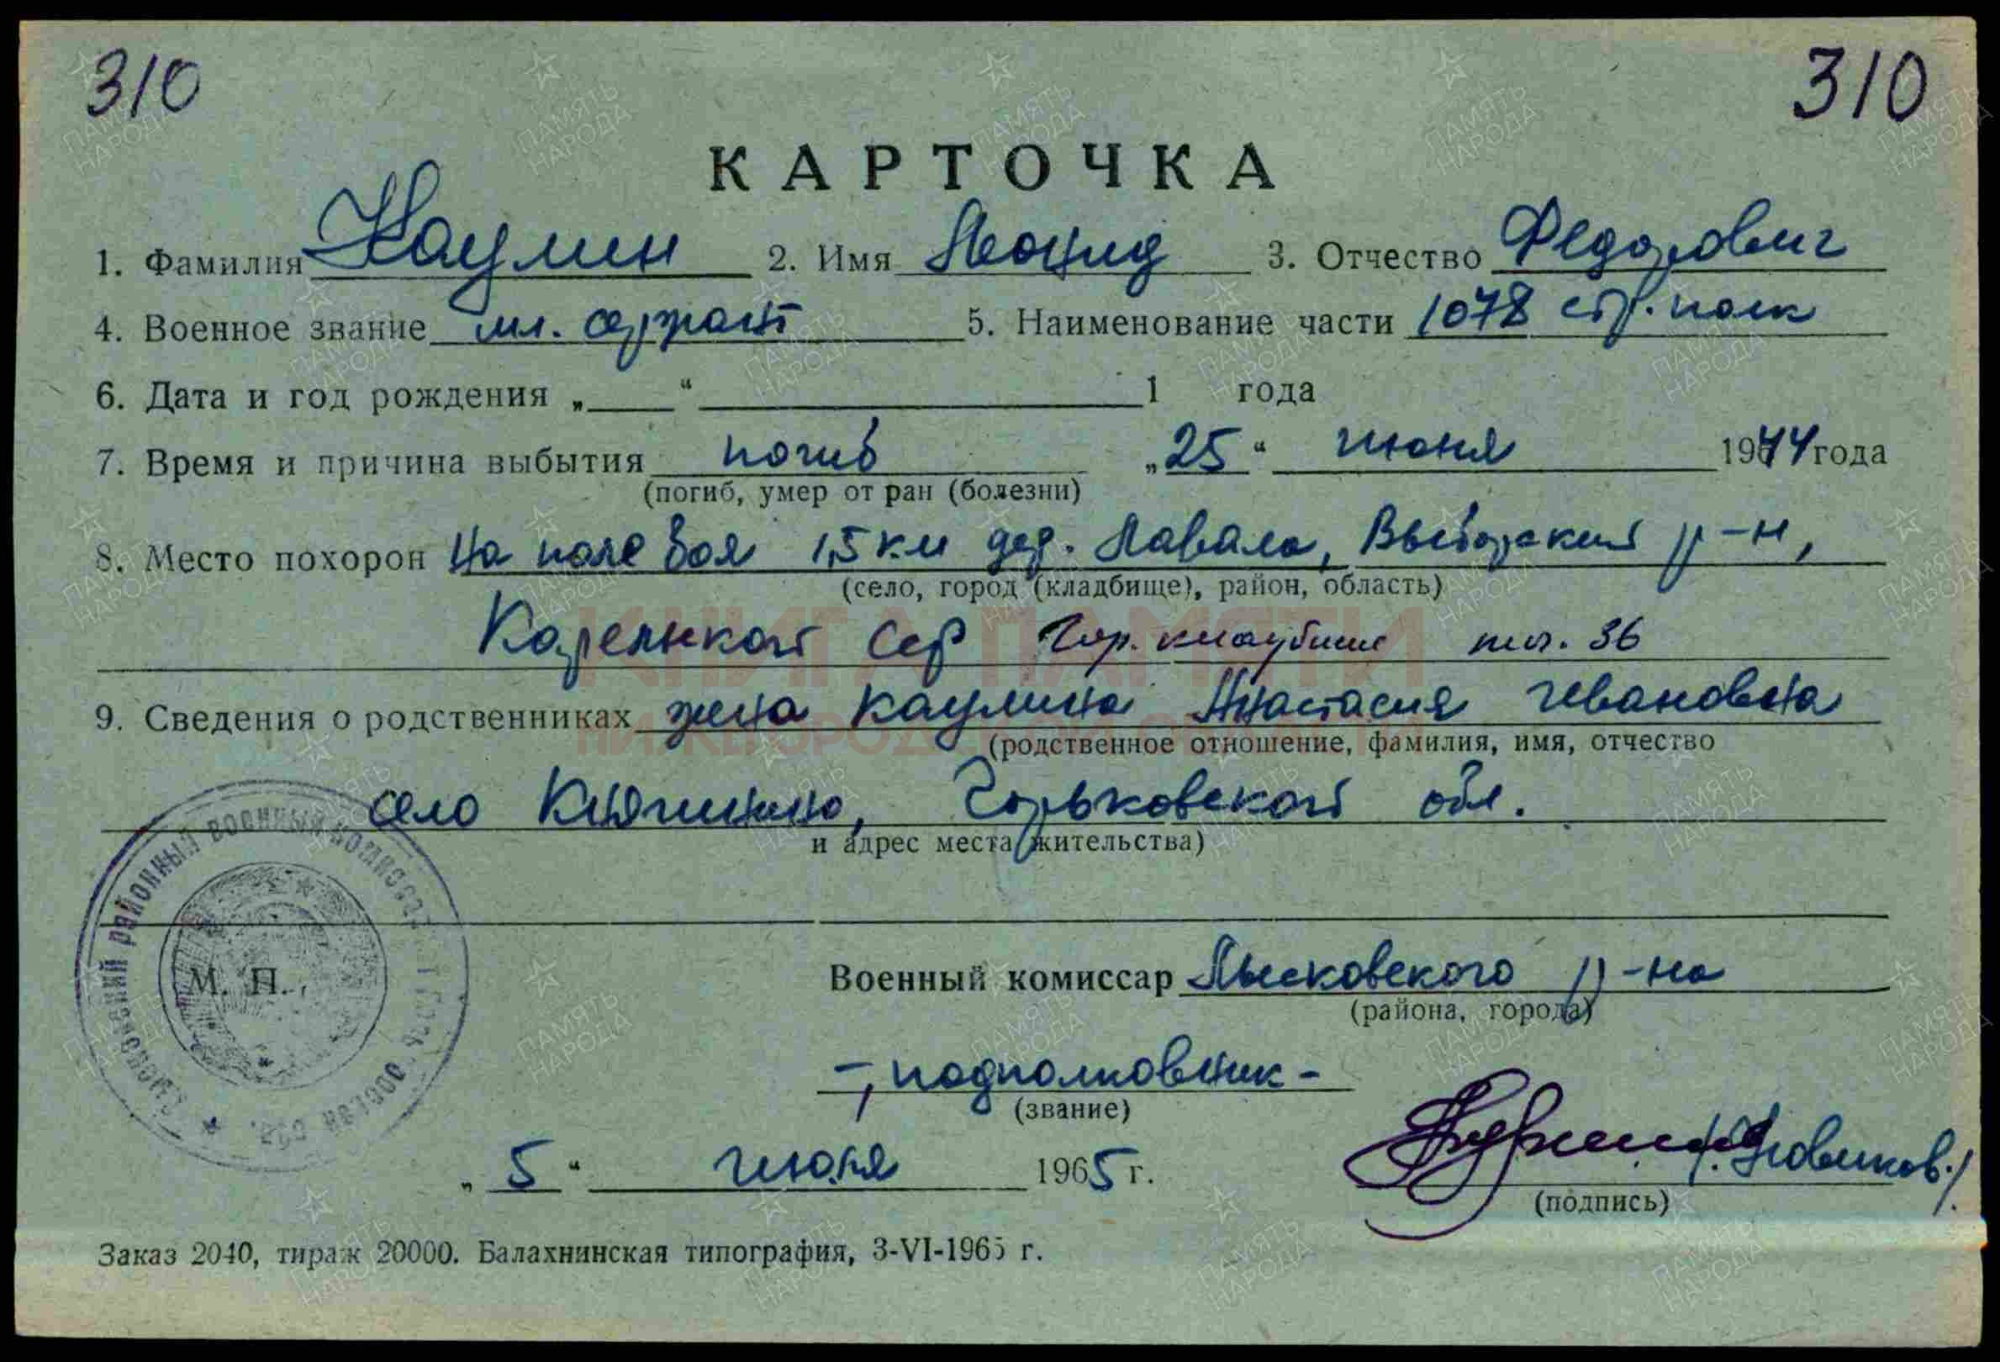 310
310
КАРТОЧКА
1. Фамилия Каулин 2. Имя Леонид 3. Отчество Федорович
4. Военное звание мл. сержант 5. Наименование части 1078 стр. полк
6. Дата и год рождения „ “ 1 года
7. Время и причина выбытия погиб „25“ июня 1944 года
(погиб, умер от ран (болезни)
8. Место похорон на поле боя 1,5 км дер. Лавала, Выборгский р-н,
(село, город (кладбище), район, область)
Карельской ССР Гор. кладбище 36
9. Сведения о родственниках жена Каулина Анастасия Ивановна
(родственное отношение, фамилия, имя, отчество
село Княгинино, Горьковской обл.
и адрес места жительства)
М. П.
Военный комиссар Лысковского р-на
(района, города)
-, подполковник -
(звание)
„5“ июля 1965 г.
(подпись)
Заказ 2040, тираж 20000. Балахнинская типография, 3-VI-1965 г.
КНИГА ПАМЯТИ
НИЖЕГОРОДСКОЙ ОБЛАСТИ
ПАМЯТЬ НАРОДА